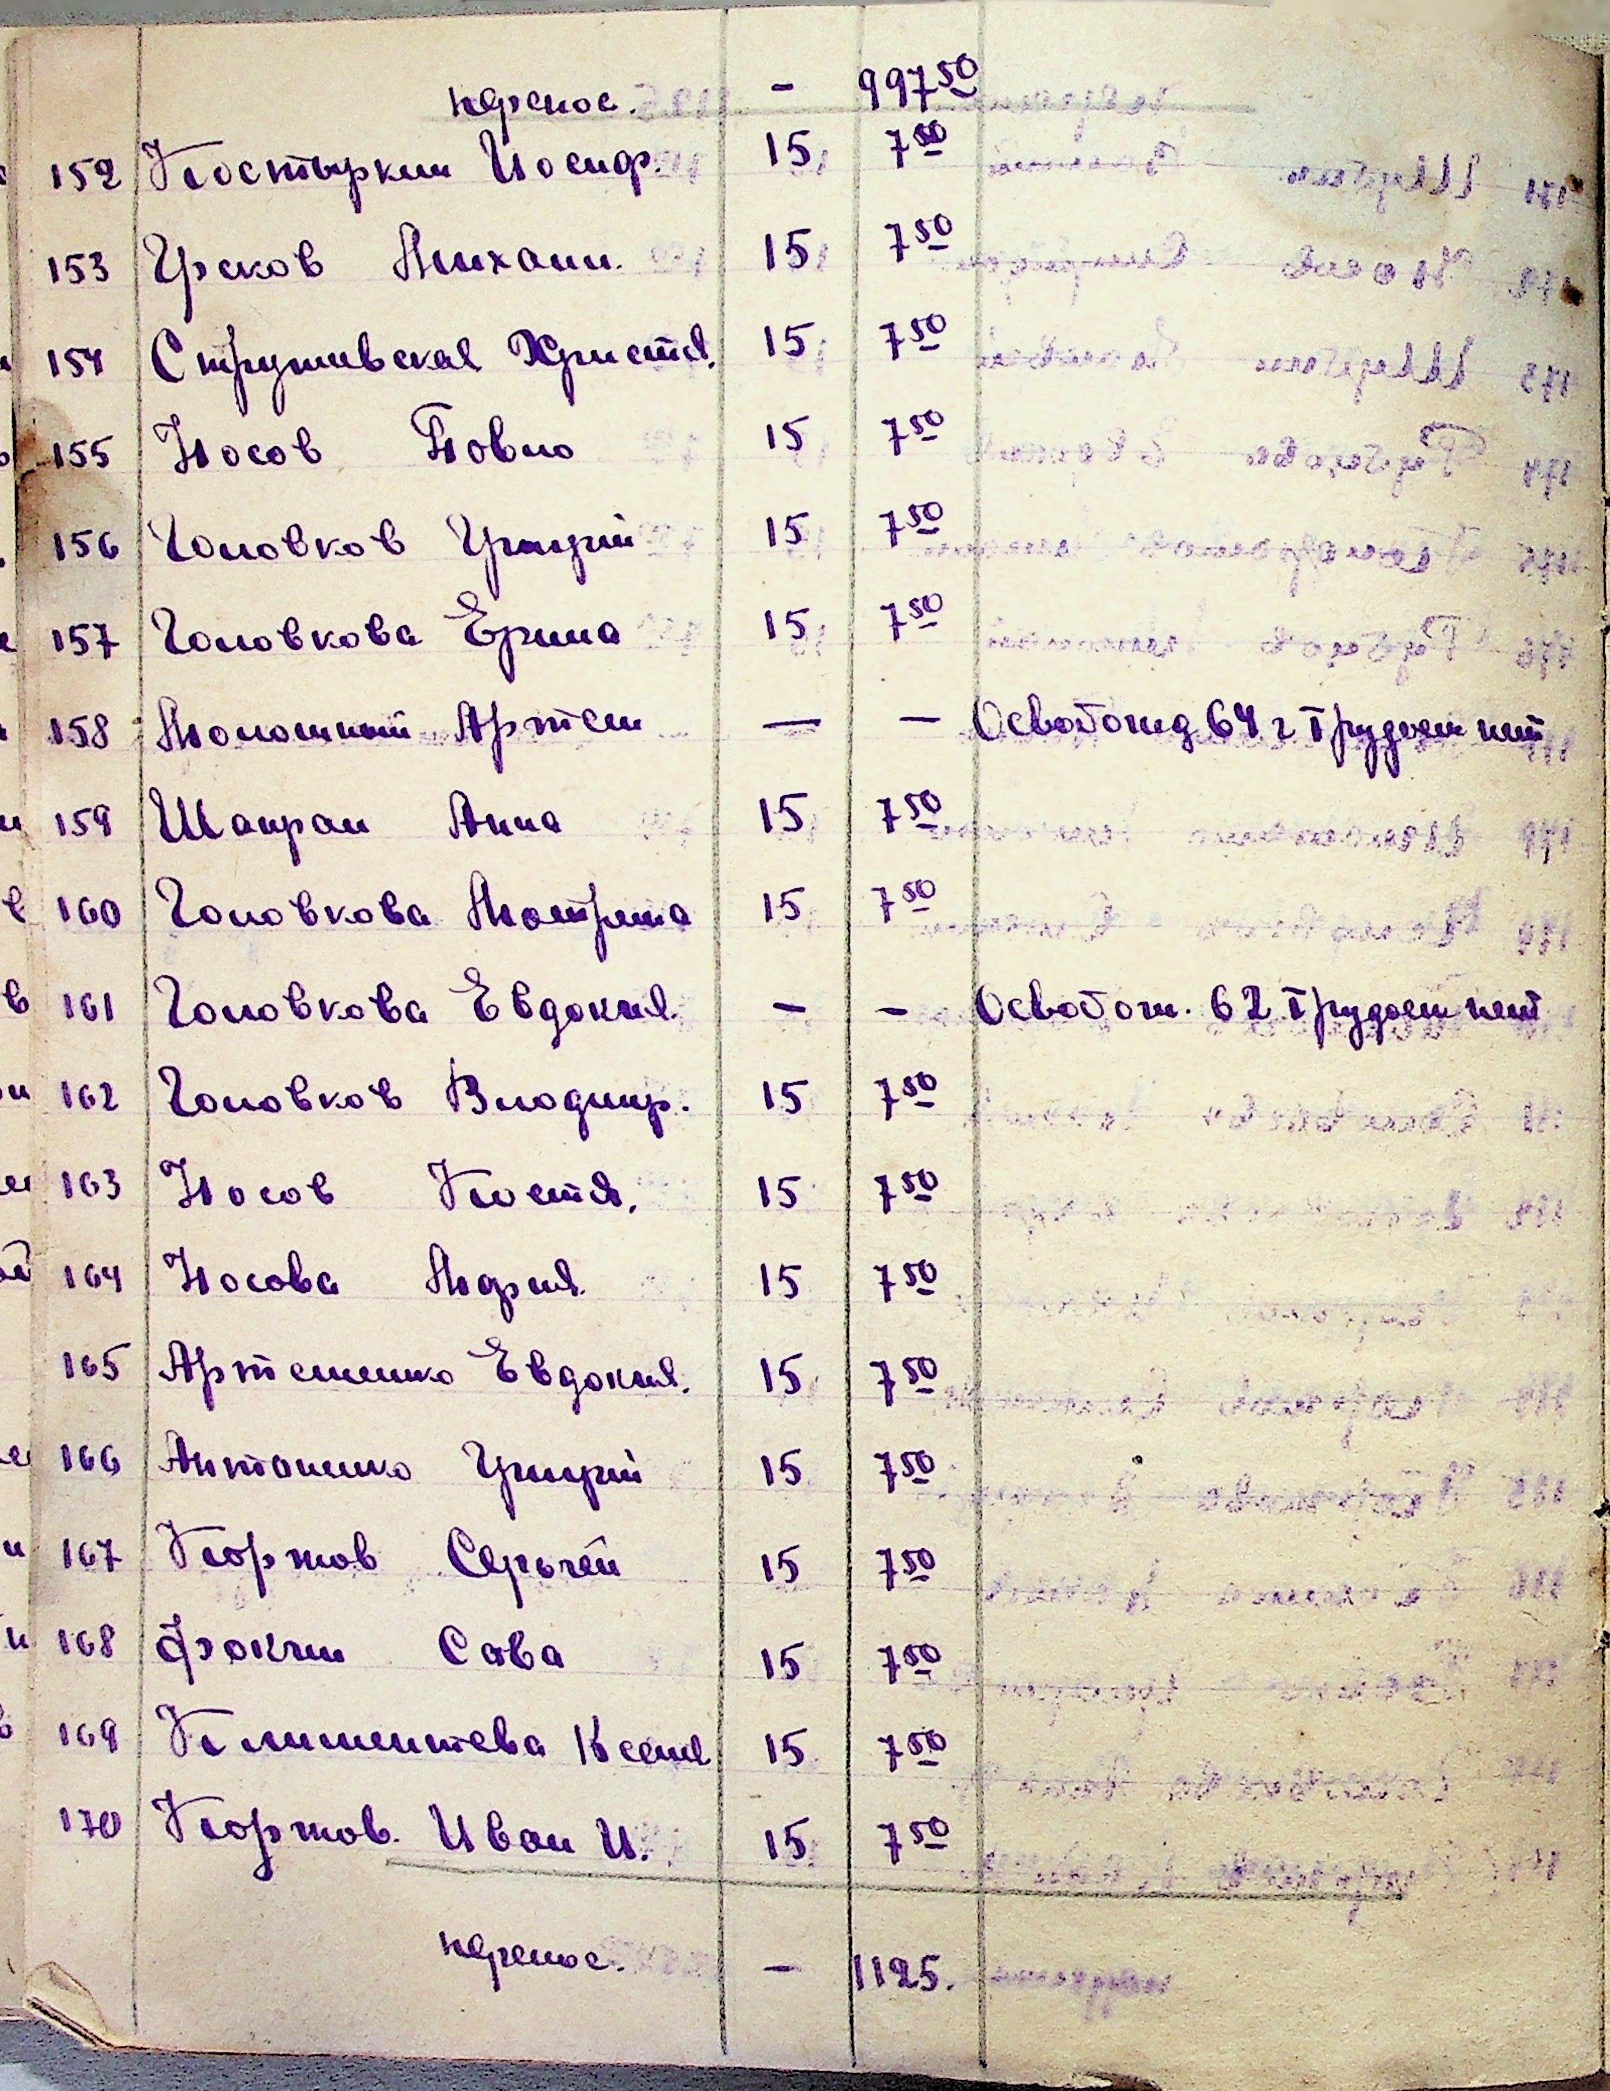 перенос. - 997 50
152 Костыркин Иосиф. 15 7 50
153 Греков Михаил. 15 7 50
154 Струтивская Христя. 15 7 50
155 Носов Павло 15 7 50
156 Головков Григрий 15 7 50
157 Головкова Ерина 15 7 50
158 Молошный Артем — — Освобожд 64 г Трудосп нет
159 Шапран Анна 15 7 50
160 Головкова Мотрина 15 7 50
161 Головкова Евдокия. - - Освобож. 62 Трудосп нет
162 Головков Владимир. 15 7 50
163 Носов Костя. 15 7 50
164 Носова Мария. 15 7 50
165 Артеменко Евдокия. 15 7 50
166 Антоненко Григрий 15 7 50
167 Коржов Сергей 15 7 50
168 Фокин Сава 15 7 50
169 Климентева Ксеня 15 7 50
170 Коржов. Иван И. 15 7 50
перенос. - 1125.